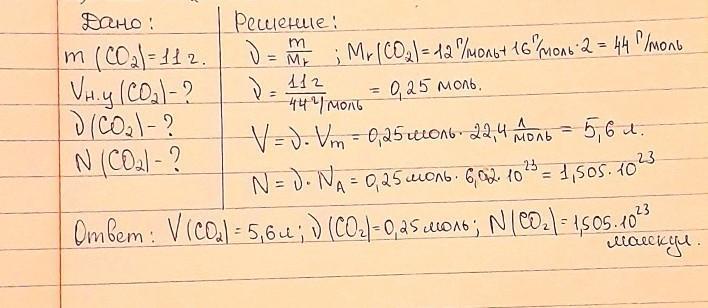 Дано:
m (CO₂)=11г.
Vн.у (CO₂)-?
ν(CO₂)-?
N(CO₂)-?
Решение:
ν = m/Mr ; Mr(CO₂)=12 г/моль+16 г/моль·2=44 г/моль
ν = 11г/44 г/моль = 0,25 моль.
V=ν·Vm=0,25моль·22,4 л/моль = 5,6 л.
N=ν·NA=0,25моль·6,02·10²³=1,505·10²³
Ответ: V(CO₂)=5,6л; ν(CO₂)=0,25моль; N(CO₂)=1,505·10²³
молекул.